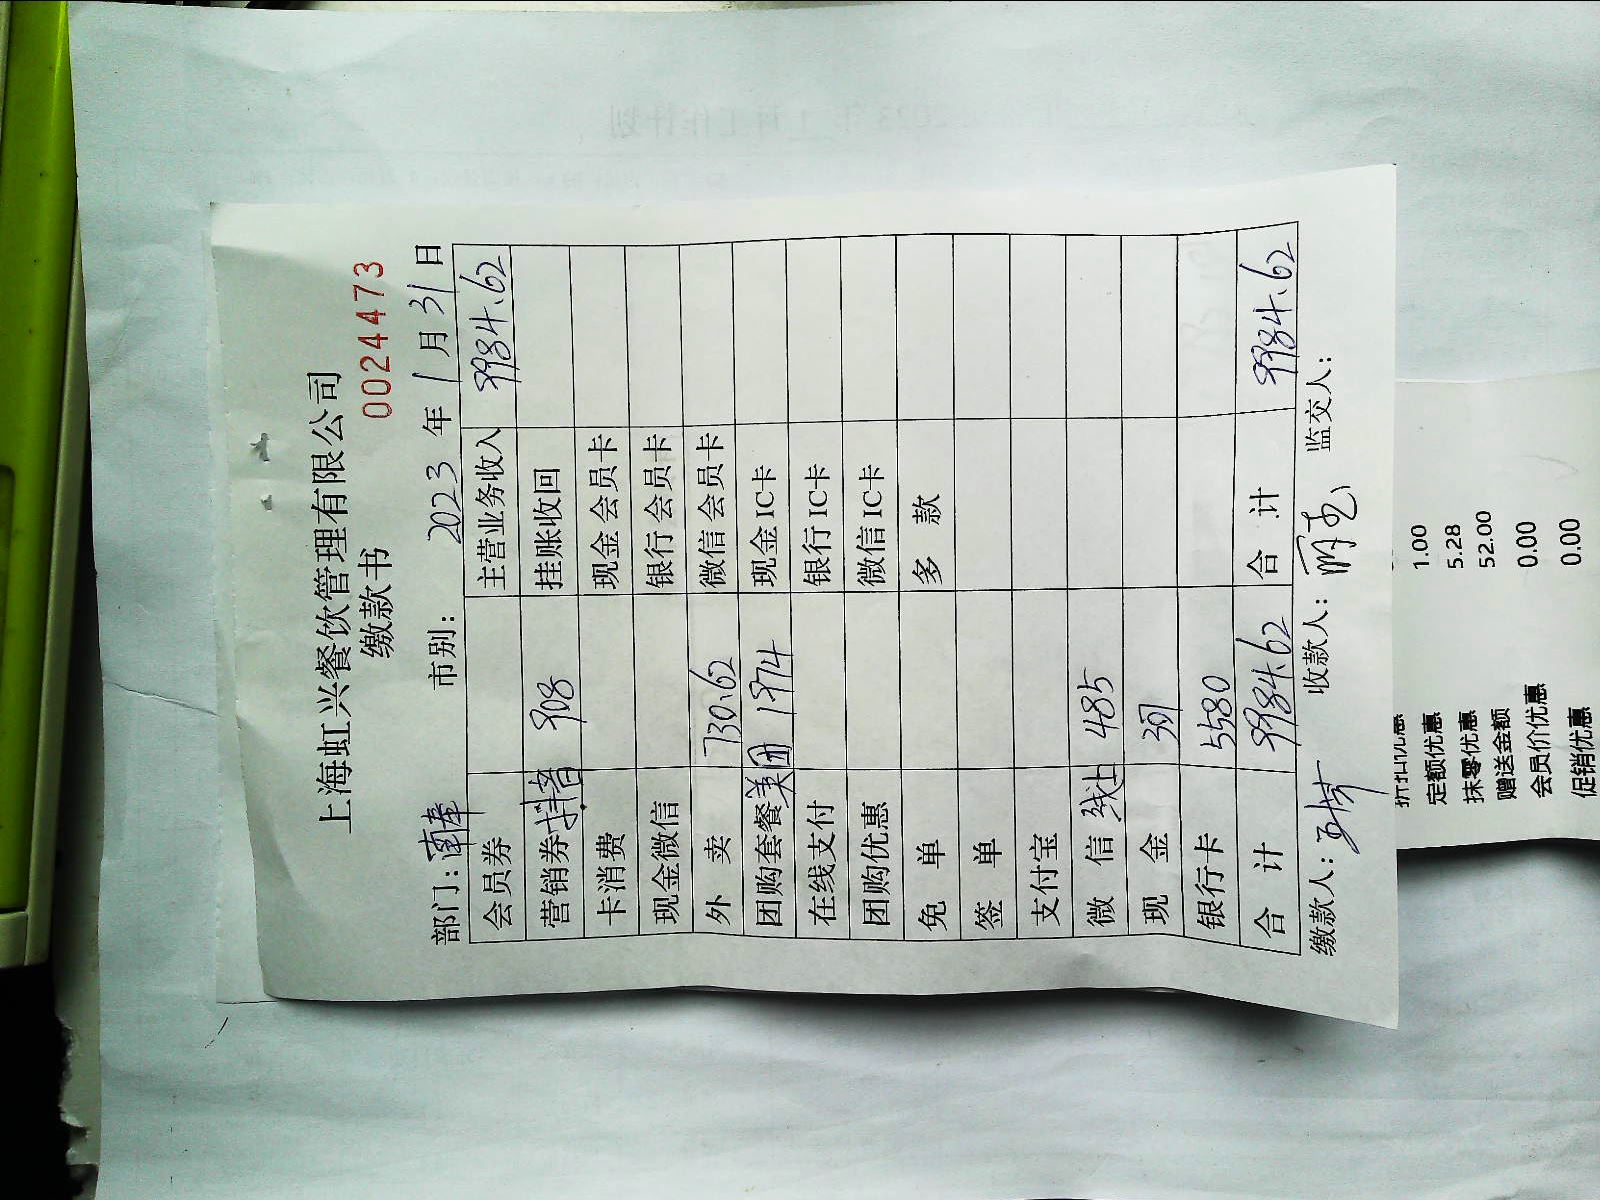 上海虹兴餐饮管理有限公司
缴款书 0024473
部门：南奉 市别： 2023 年 1 月 31 日
会员券 主营业务收入 9984.62
营销券 抖音 908 挂账收回
卡消费 现金会员卡
现金微信 银行会员卡
外卖 730.62 微信会员卡
团购套餐 美团 1974 现金IC卡
在线支付 银行IC卡
团购优惠 微信IC卡
免单 多款
签单
支付宝
微信 线上 485
现金 307
银行卡 5580
合计 9984.62 合计 9984.62
缴款人： 收款人： 监交人：
折扣优惠
定额优惠 1.00
抹零优惠 5.28
赠送金额 52.00
会员价优惠 0.00
促销优惠 0.00